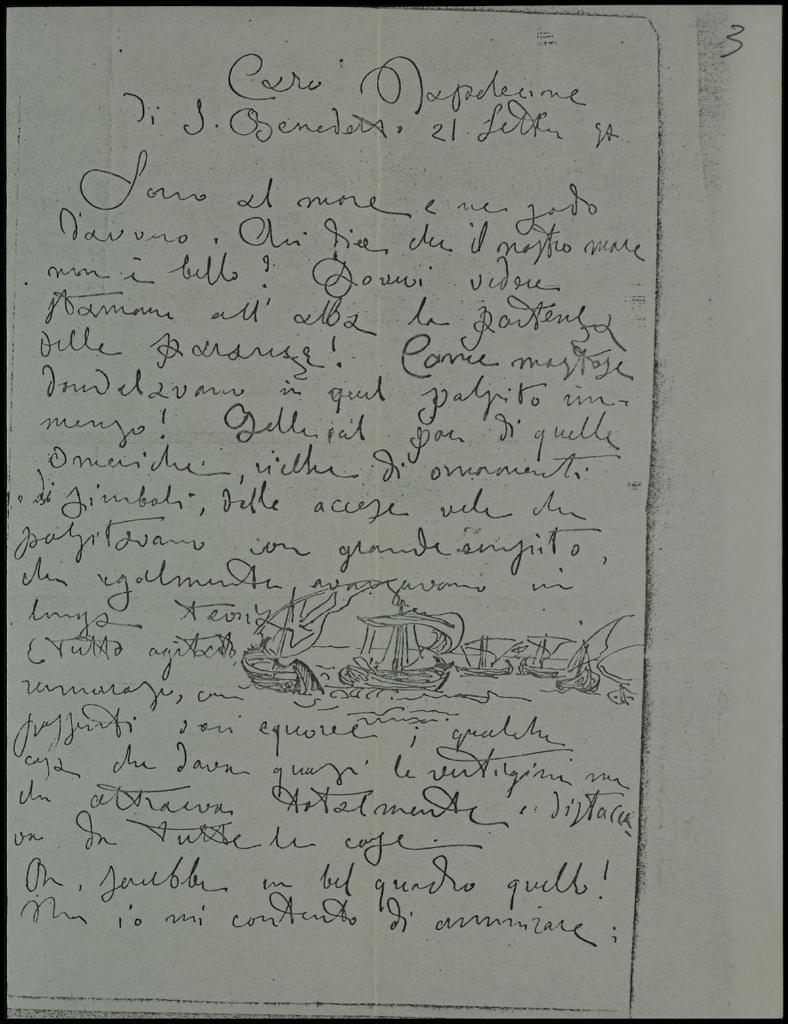 3
Caro Napoleone
Di S. Benedetto 21 Settbr
Sono al mare e ne godo
davvero. Chi dice che il nostro mare
non è bello? Dovevi vedere
stamane all'alba la partenza
delle paranze! Come maestose
dondolavano in quel palpito im-
menso! di quelle
omeriche, ricche di ornamenti
di simboli, delle accese vele che
palpitavano con grande empito,
che egualmente avanzavano in
lunga teoria
E tutto agitato,
rumoroso, con
possenti equoree; qualche
cosa che dava quasi le vertigini ma
che attraeva totalmente e distacca
va da tutte le cose.
Oh, sarebbe un bel quadro quello!
Ma io mi contento di ammirare: